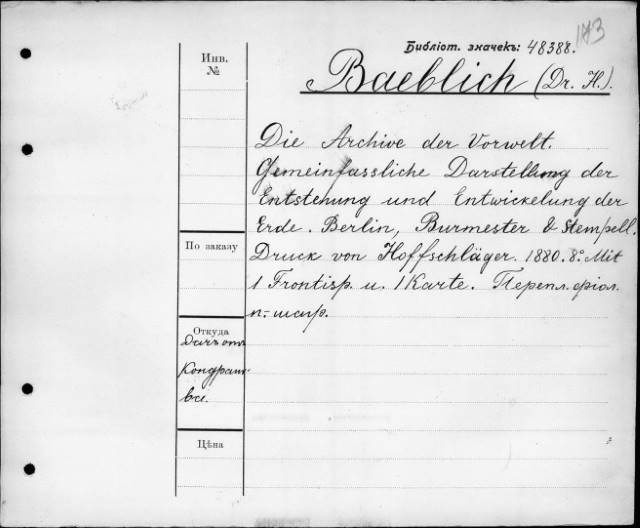 173
Библіот. значекъ: 48388.
Инв.
№
Baeblich (Dr. H.).
Die Archive der Vorwelt.
Gemeinfassliche Darstellung der
Entstehung und Entwickelung der
Erde. Berlin, Burmester & Stempell.
Druck von Hoffschläger. 1880. 8º. Mit
1 Frontisp. u. 1 Karte. Перепл. фіол.
п.-шагр.
По заказу
Откуда
Даръ отъ
Цѣна